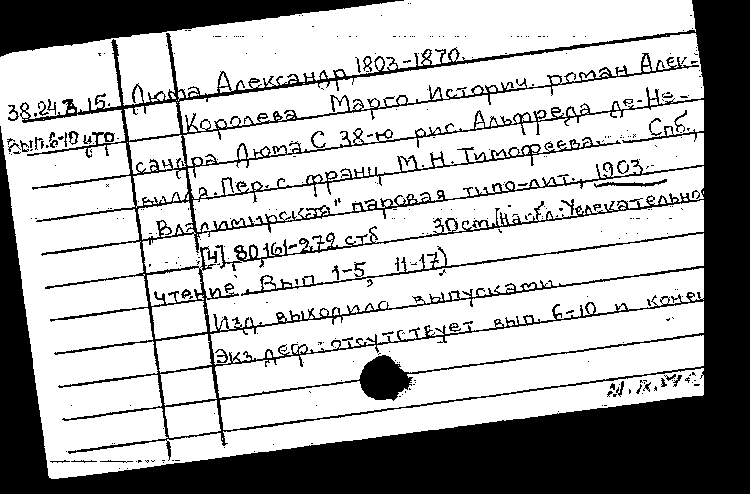 Дюма, Александр, 1803-1870.
38.24.3.15.
Вып.6-10 утр.
Королева Марго. Историч. роман Алек-
сандра Дюма. С 38-ю рис. Альфреда де-Не-
вилла. Пер. с франц. М.Н. Тимофеева. Спб.,
„Владимирская" паровая типо-лит., 1903.
[4], 80, 161-272 стб 30 см. (На обл.: Увлекательное
чтение. Вып. 1-5, 11-17)
Изд. выходило выпусками.
Экз. деф.: отсутствует вып. 6-10 и конец